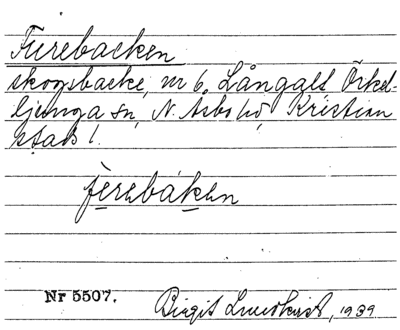 Furebacken
skogsbacke, nr 6, Långalt Örkel-
ljunga sn, N. Åsbo hd, Kristian
stads l.
ferebaken
Nr 5507. Birgit Lundkvist, 1939